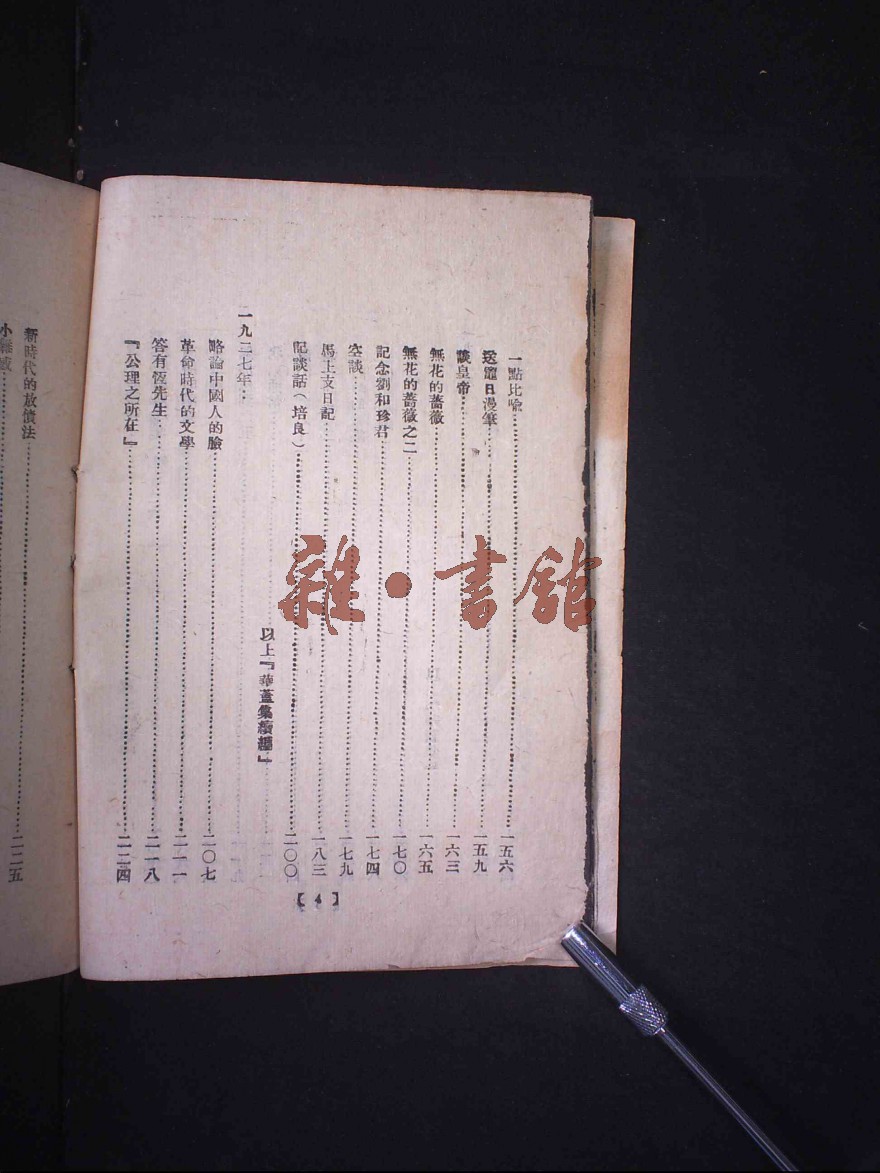 一點比喻……一五六
送竈日漫筆……一五九
談皇帝……一六三
無花的薔薇……一六五
無花的薔薇之二……一七〇
記念劉和珍君……一七四
空談……一七九
馬上支日記……一八三
記談話(培良)……二〇〇
以上『華蓋集續編』
一九二七年:
略論中國人的臉……二〇七
革命時代的文學……二一一
答有恆先生……二一八
『公理之所在』……二二四
【4】
新時代的放債法……二二五
小雜感……
雜·書館